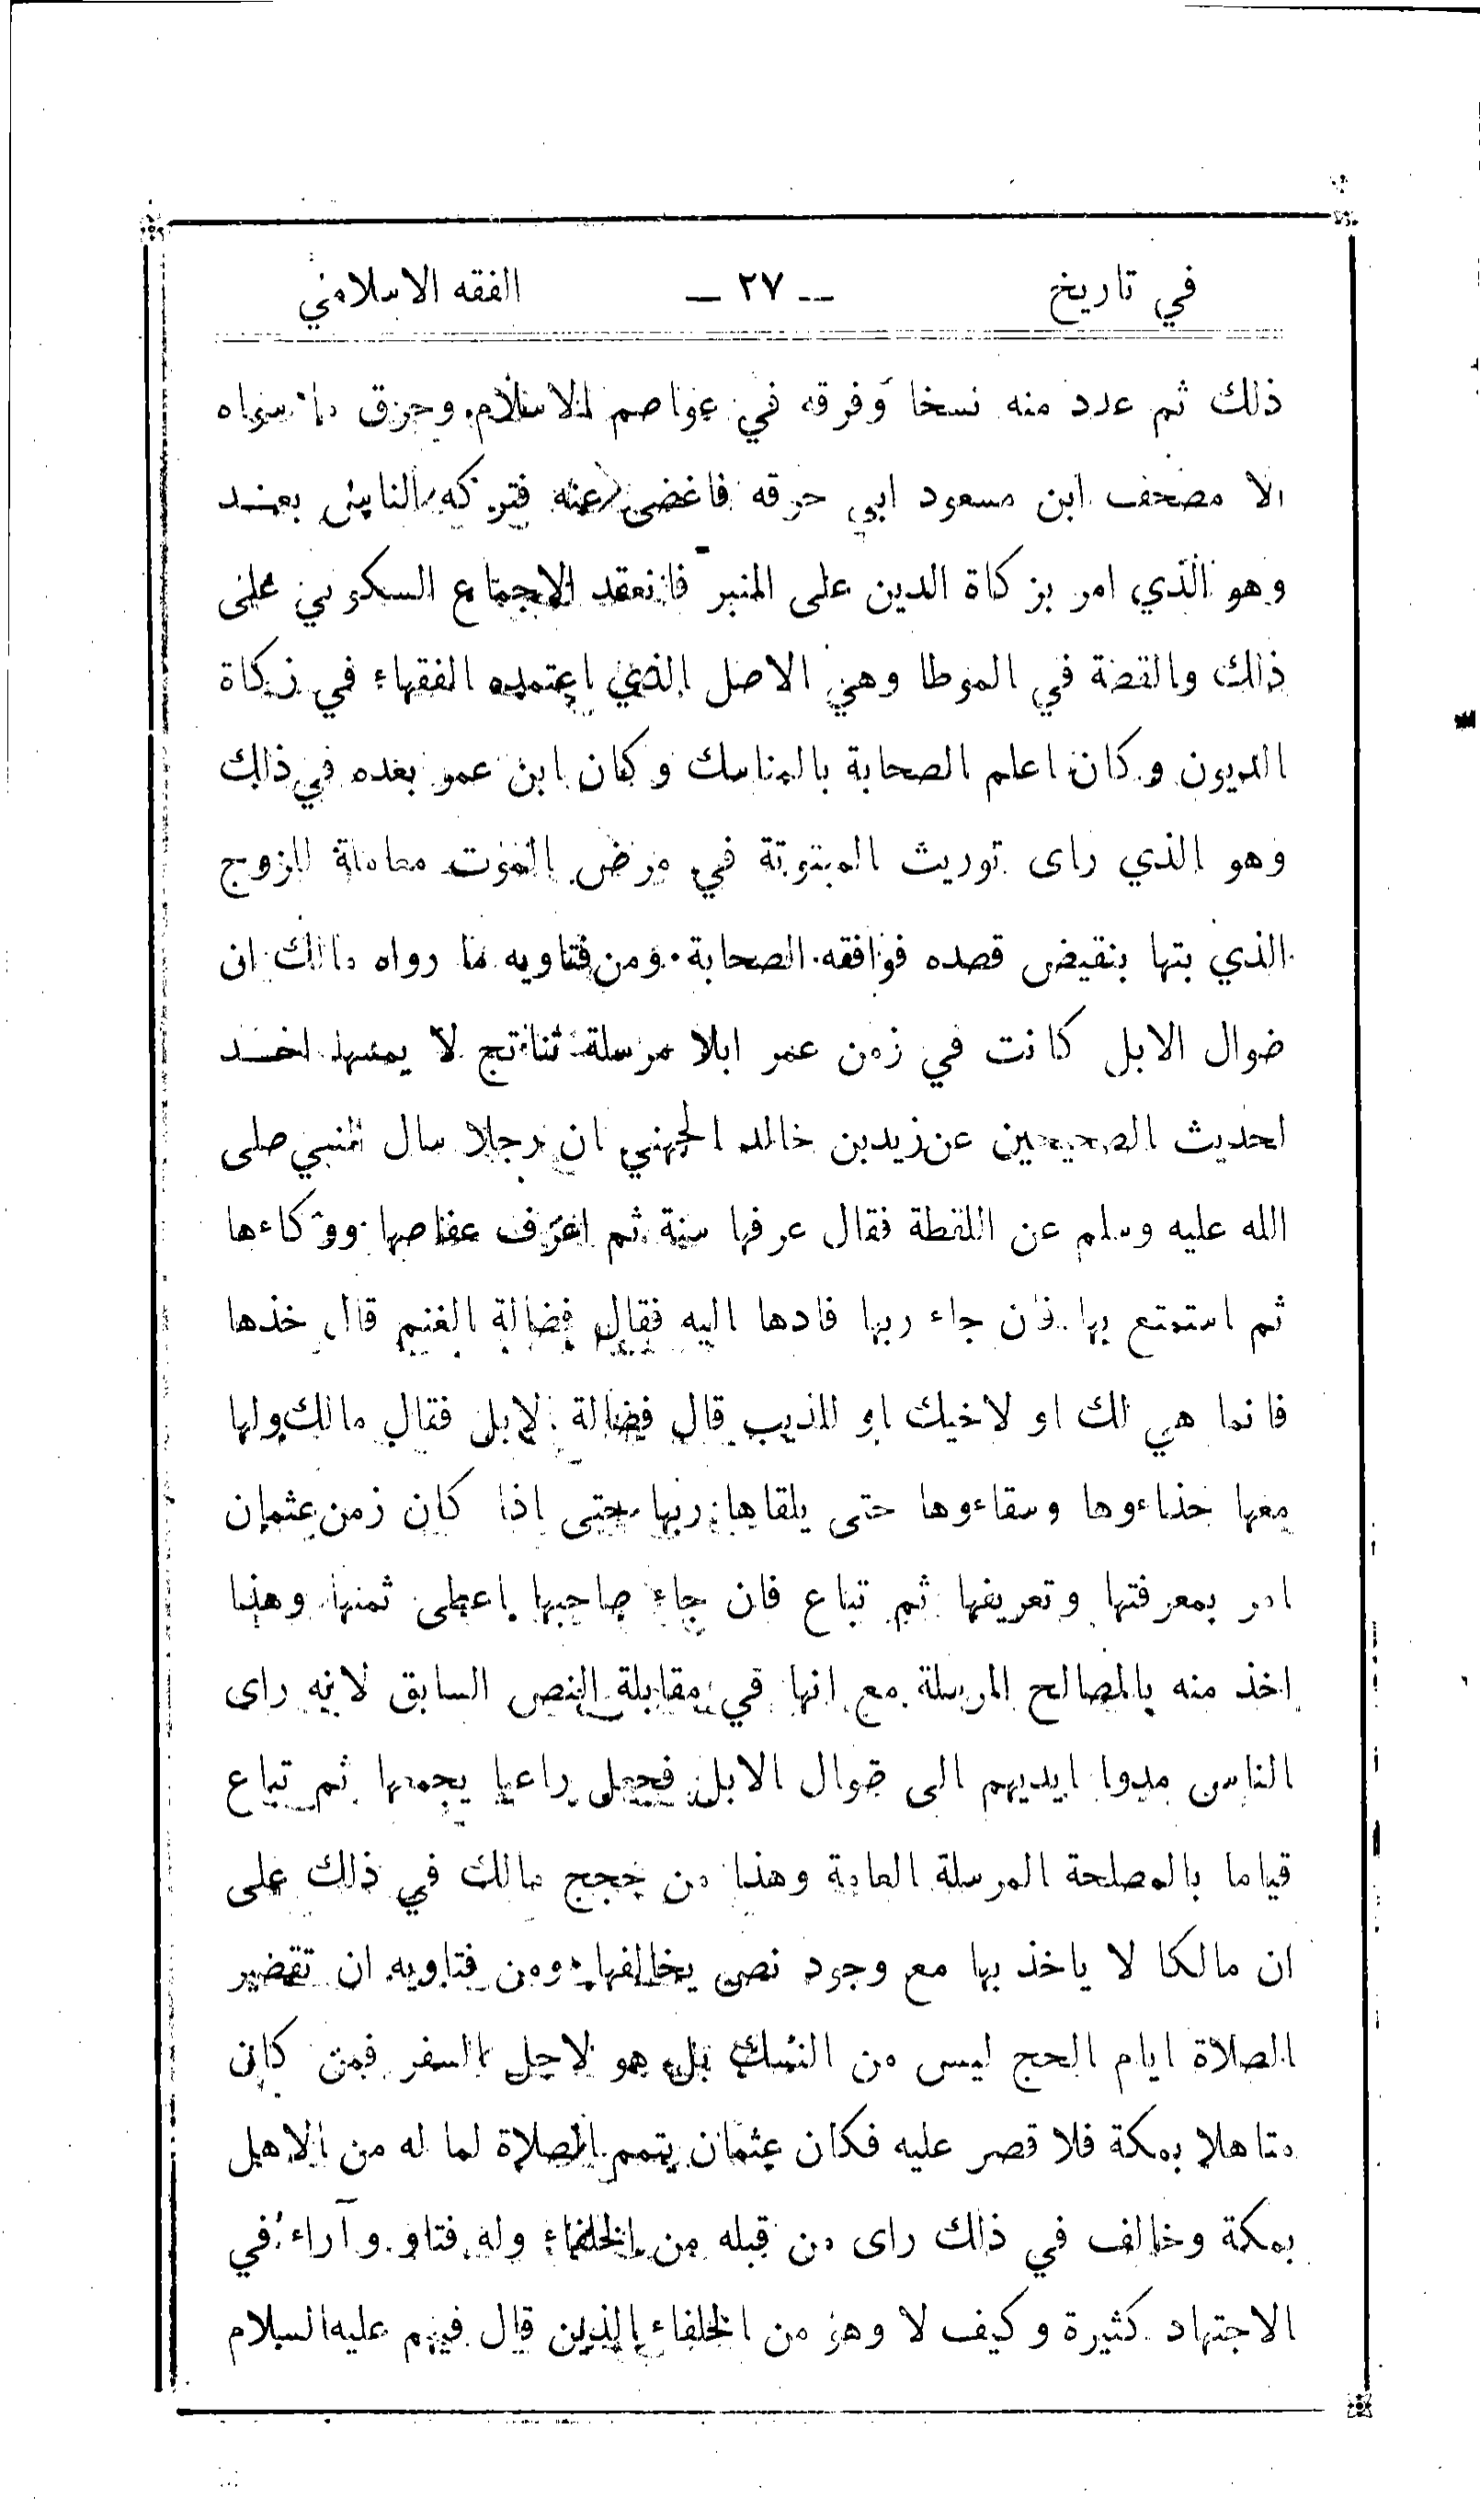 في تاريخ -- ٢٧ -- الفقه الاسلامي
ذلك ثم عدد منه نسخا وفرقه في عواصم الاسلام وحرق ما سواه
الا مصحف ابن مسعود ابى حرقه فاغضى عنه فتركه الناس بعد
وهو الذي امر بزكاة الدين على المنبر فانعقد الاجماع السكوتي على
ذلك والقضة في الموطا وهي الاصل الذي اعتمده الفقهاء في زكاة
الديون وكان اعلم الصحابة بالمناسك وكان ابن عمر بعده في ذلك
وهو الذي راى توريث المبتوتة في مرض الموت معاملة للزوج
الذي بتها بنقيض قصده فوافقه الصحابة. ومن فتاويه ما رواه مالك ان
ضوال الابل كانت في زمن عمر ابلا مرسلة تناتج لا يمسها احد
لحديث الصحيحين عن زيد بن خالد الجهني ان رجلا سال النبي صلى
الله عليه وسلم عن اللقطة فقال عرفها سنة ثم اعرف عفاصها ووكاءها
ثم استمتع بها فان جاء ربها فادها اليه فقال فضالة الغنم قال خذها
فانما هي لك او لاخيك او للذيب قال فضالة لابل فقال مالك ولها
معها حذاءوها وسقاءوها حتى يلقاها ربها حتى اذا كان زمن عثمان
امر بمعرفتها وتعريفها ثم تباع فان جاء صاحبها اعطى ثمنها وهذا
اخذ منه بالمصالح المرسلة مع انها في مقابلة النص السابق لانه راى
الناس مدوا ايديهم الى ضوال الابل فجعل راعيا يجمعها ثم تباع
قياما بالمصلحة المرسلة العامة وهذا من حجج مالك في ذلك على
ان مالكا لا ياخذ بها مع وجود نص يخالفها. ومن فتاويه ان تقصير
الصلاة ايام الحج ليس من النسك بل هو لاجل السفر فمن كان
متاهلا بمكة فلا قصر عليه فكان عثمان يتمم الصلاة لما له من الاهل
بمكة وخالف في ذلك راى من قبله من الخلفاء وله فتاو وآراء في
الاجتهاد كثيرة وكيف لا وهو من الخلفاء الذين قال فيهم عليه السلام